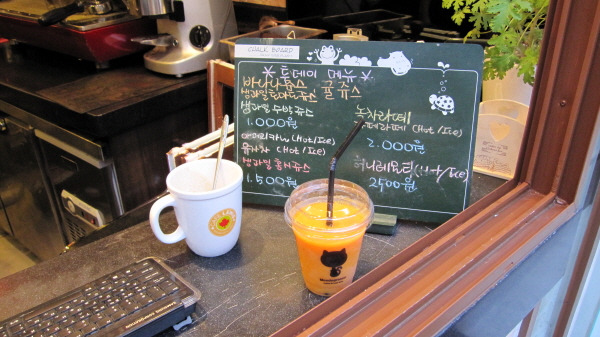 CHALK BOARD
투데이 메뉴
바나나쥬스 귤쥬스
생과일토마토쥬스
생과일 수박쥬스
1.000원
녹차라떼
카페라떼 (Hot/Ice)
2.000원
아메리카노 (Hot/Ice)
유자차 (Hot/Ice)
생과일 홍시쥬스
1.500원
허니레몬티 (Hot/Ice)
2500원